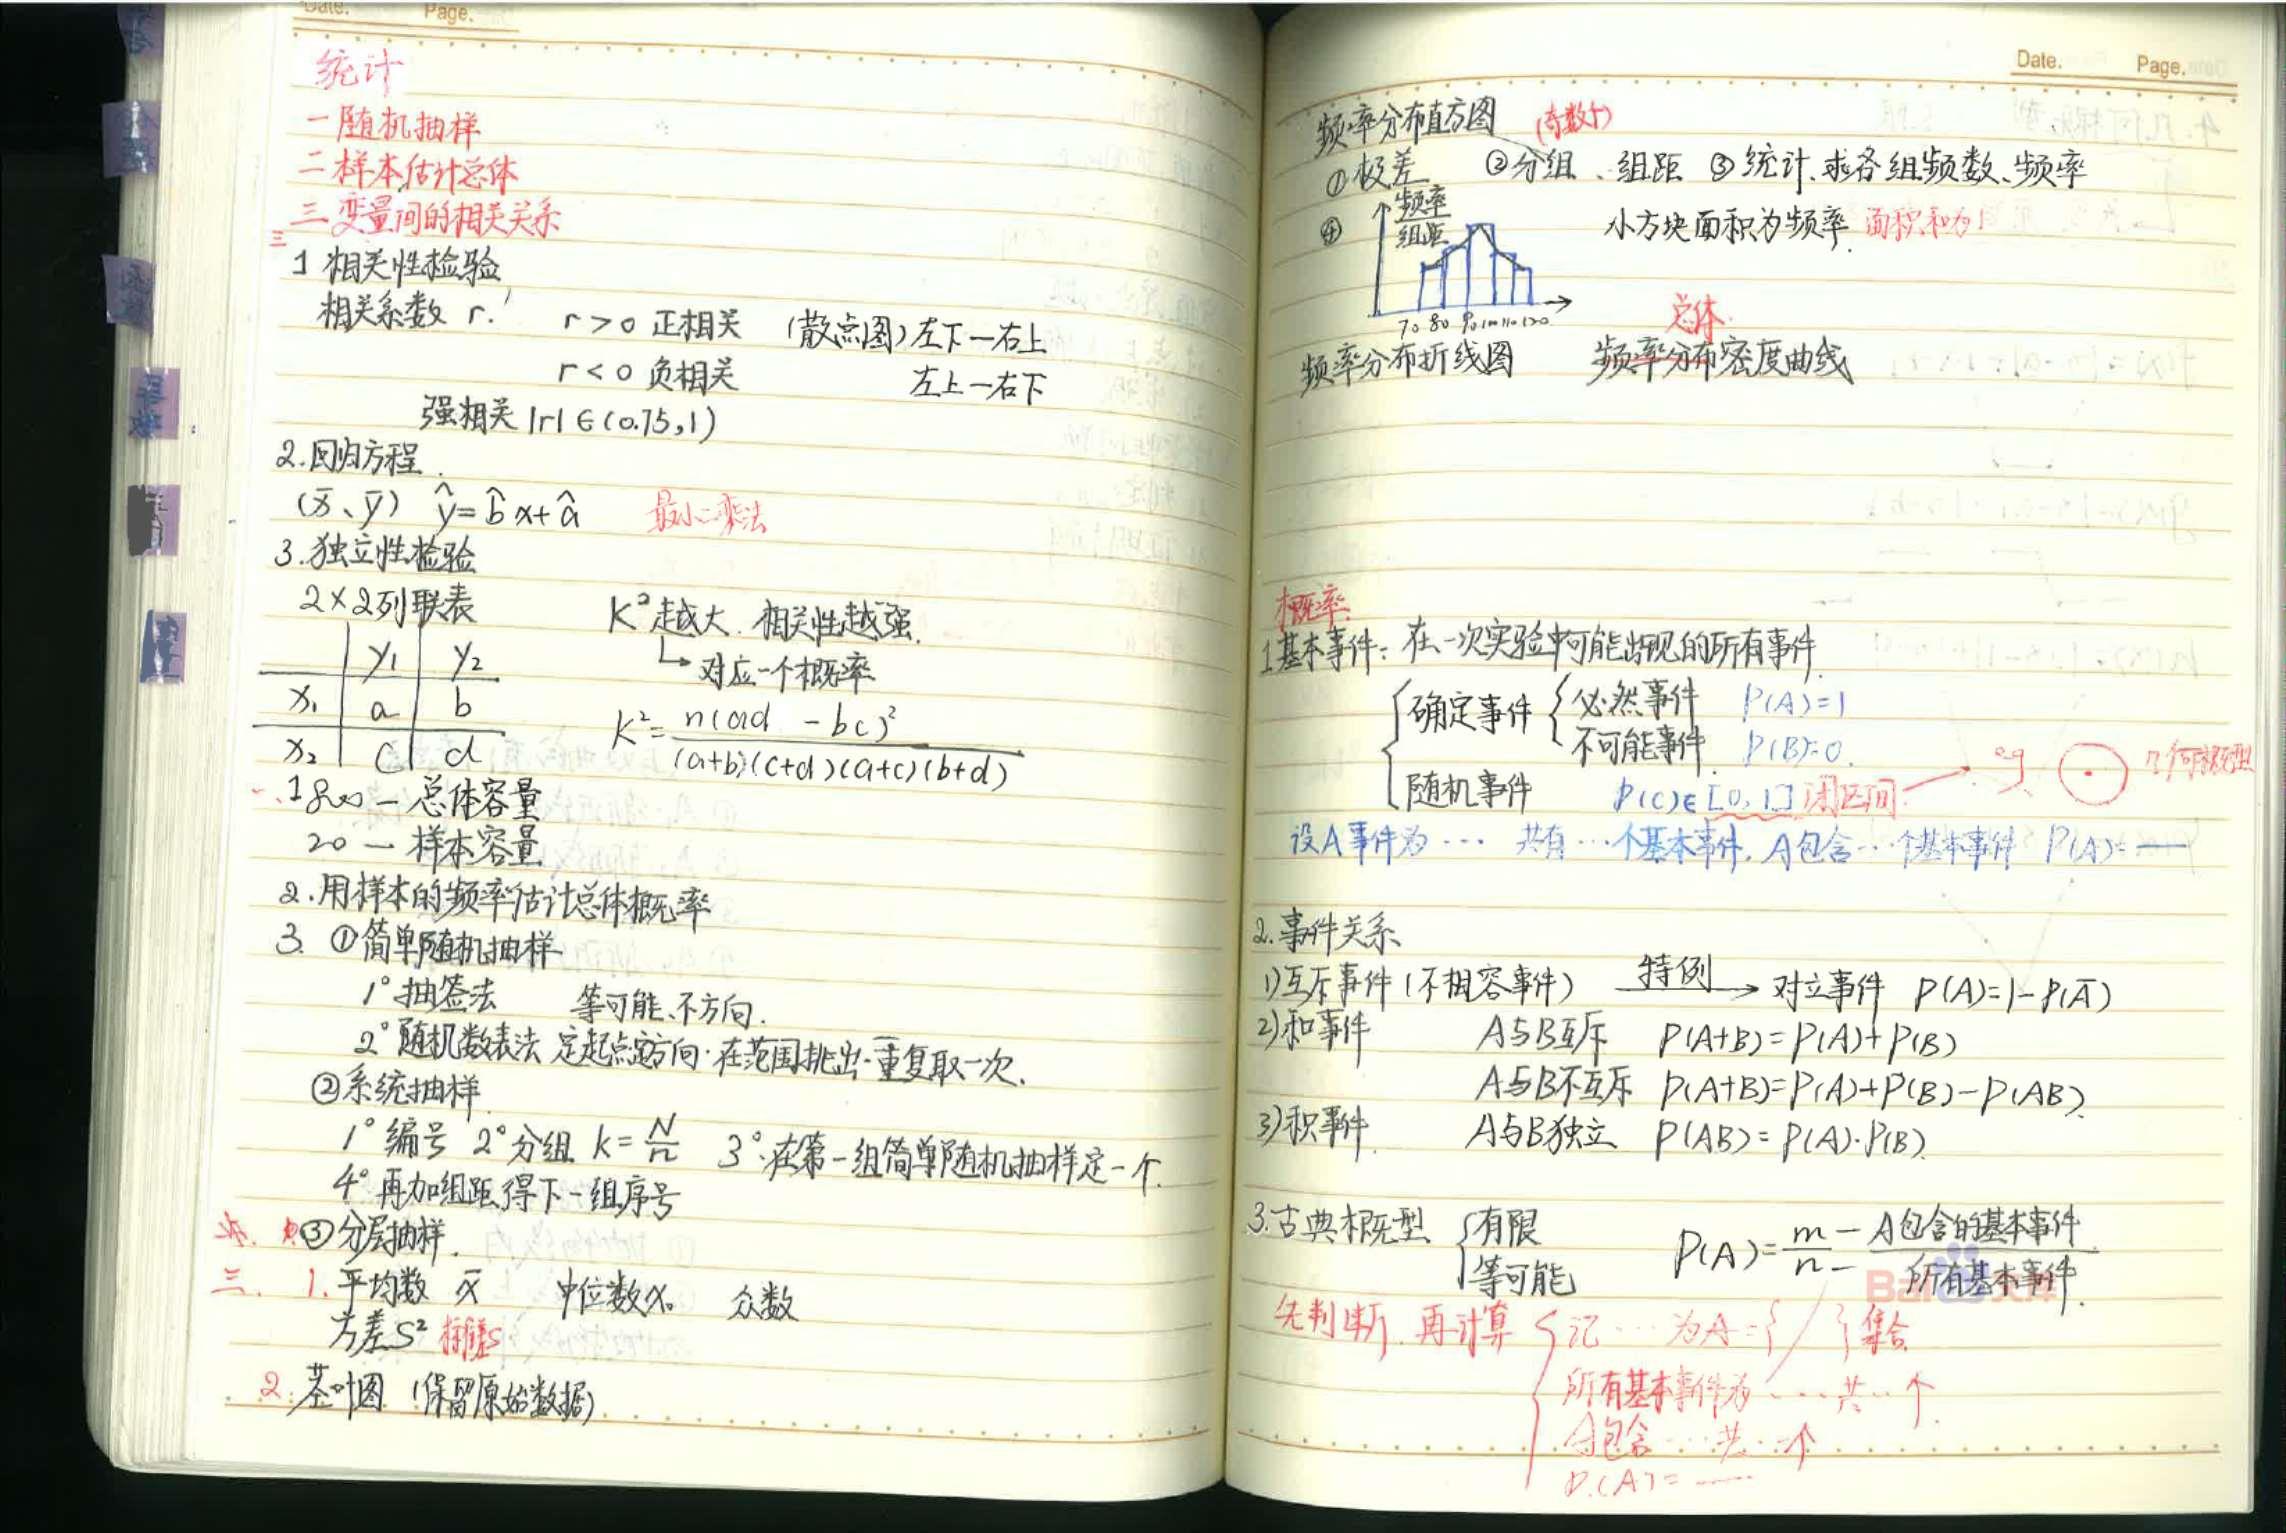 Date. Page.
统计
一 随机抽样
二 样本估计总体
三 变量间的相关关系
三
1 相关性检验
相关系数 r. r>0 正相关 (散点图)左下—右上
r<0 负相关 左上—右下
强相关 |r|∈(0.75,1)
2.回归方程
(x̄、ȳ) ŷ=b̂x+â 最小二乘法
3.独立性检验
2×2列联表 K²越大.相关性越强.
↳对应一个概率
y₁ y₂
x₁ a b
x₂ c d
K²=n(ad-bc)²/(a+b)(c+d)(a+c)(b+d)
一、1 800 — 总体容量
20 — 样本容量
2.用样本的频率估计总体概率
3. ①简单随机抽样
1°抽签法 等可能、不方向.
2°随机数表法 定起点定方向·在范围挑出·重复取一次.
②系统抽样
1°编号 2°分组 k=N/n 3°.在第一组简单随机抽样定一个.
4°再加组距得下一组序号
③分层抽样.
二. 1.平均数 x̄ 中位数x₀ 众数
方差S² 标准差S
2.茎叶图 (保留原始数据)
Date. Page.
频率分布直方图 (奇数个)
①极差 ②分组、组距 ③统计.求各组频数、频率
④ 频率/组距 小方块面积为频率. 面积和为1
70 80 90 100 110 120
总体
频率分布折线图 频率分布密度曲线
概率.
1.基本事件:在一次实验中可能出现的所有事件.
确定事件 必然事件 P(A)=1
不可能事件. P(B)=0.
随机事件 P(C)∈[0,1]闭区间 几何概型
设A事件为… 共有…个基本事件.A包含…个基本事件 P(A)=—
2.事件关系
1)互斥事件(不相容事件) 特例→ 对立事件 P(A)=1-P(Ā)
2)和事件 A与B互斥 P(A+B)=P(A)+P(B)
A与B不互斥 P(A+B)=P(A)+P(B)-P(AB).
3)积事件. A与B独立 P(AB)=P(A)·P(B).
3.古典概型 有限
等可能 P(A)=m/n — A包含的基本事件/所有基本事件.
先判断.再计算 记…为A={ } 集合
所有基本事件为…共…个.
A包含…共…个
P(A)=—